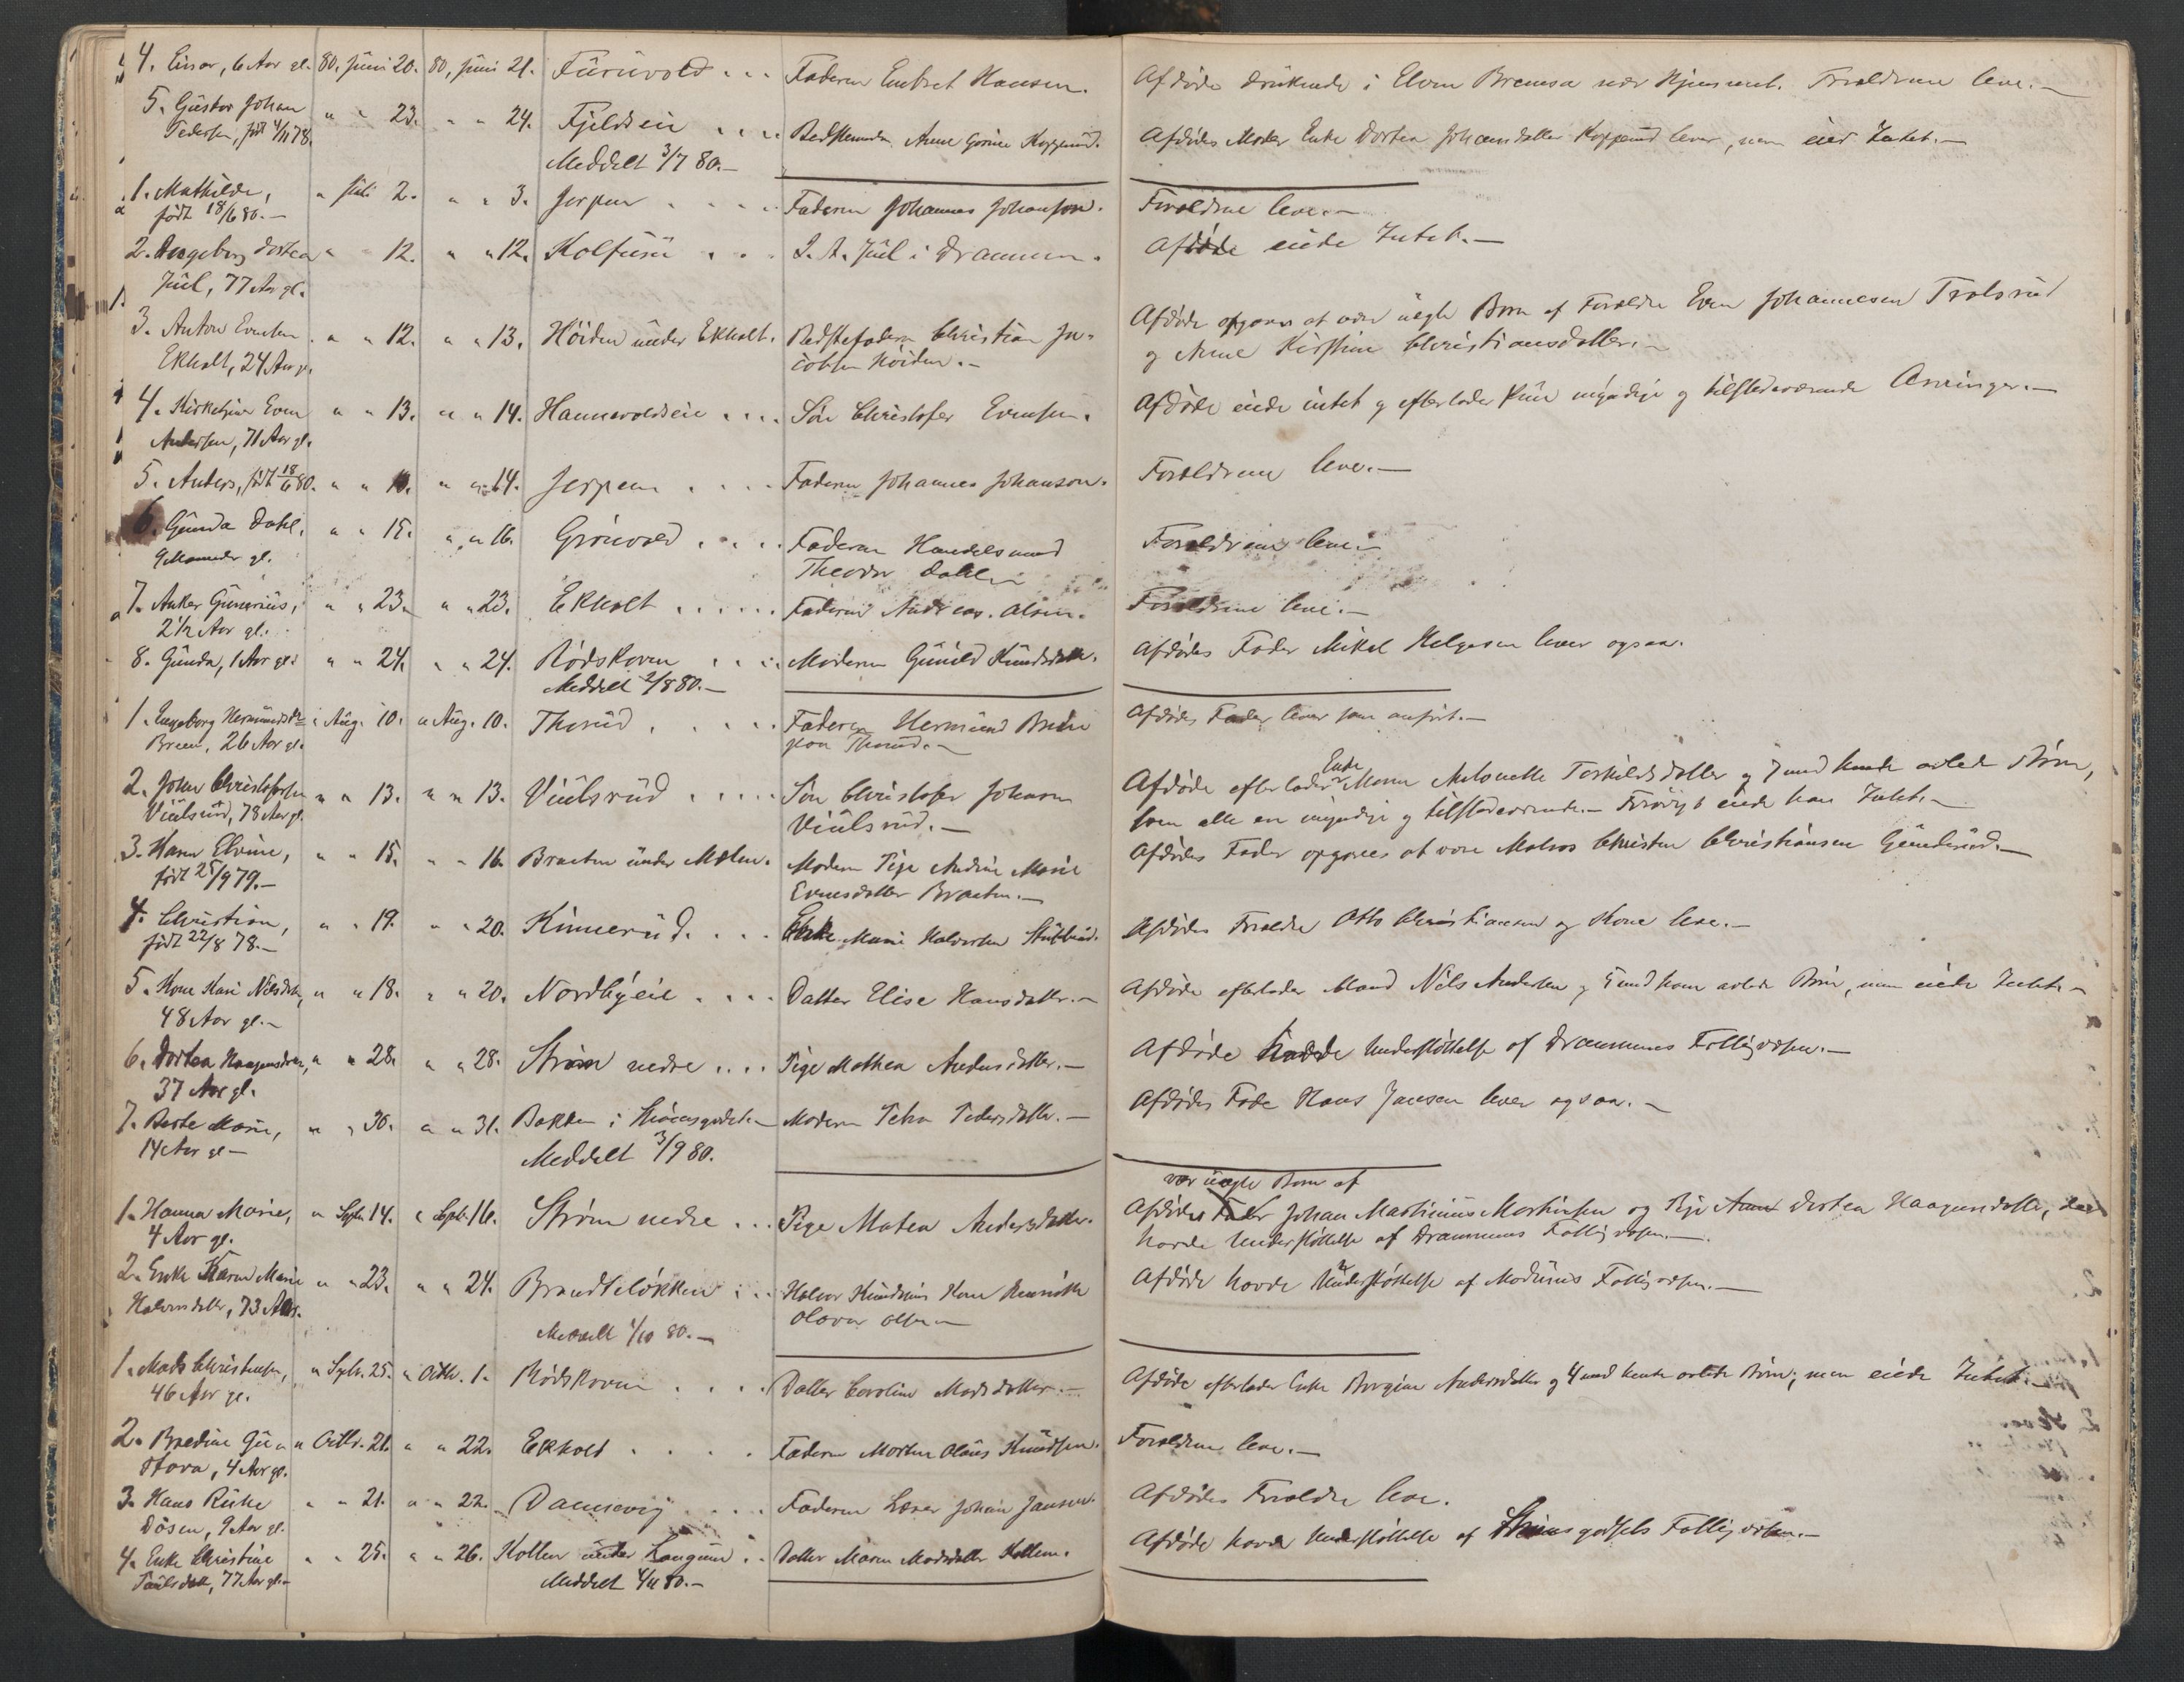 4. Einar, 6 Aar gl. 80, Juni 20. 80, Juni 21. Furuvold . . . Faderen Embret Hansen. Afdøde druknede i Elven Bremsa nær Forældrene leve.—
5. Gustav Johan " " 23. " " 24. Fjeldseie . . . . Anne Afdødes Moder Enke Dortea Johansdatter Kopperud lever, men eier Intet.—
Pedersen, født 4/11 78.
Meddelt 3/7 80.—
1. Mathilde, " Juli 2. " " 3. Jerpen . . . . Faderen Johannes Johanson. Forældrene leve.—
født 18/6 80.—
2. Ingeborg Dortea " 12. " " 12. Kolfusu . . . I. A. Juel i Drammen. Afdøde eiede Intet.—
Juel, 77 Aar gl.
3. Anton Evensen " " 12. " " 13. Høiden under Ekholt. Bedstefaderen Christian Ja- Afdøde opgaves at være uægte Barn af Forældre Even Johannesen Trolsrud
Ekholt, 24 Aar gl. cobsen Høiden.— og Anne Kirstine Christiansdatter.—
4. Kirketjener Even " " 13. " " 14. Hannevoldseie . . . . Søn Christofer Evensen. Afdøde eiede intet og efterlader kun myndige og tilstedeværende Arvinger.—
Andersen, 71 Aar gl.
5. Anders, født 18/6 80. " " 13. " " 14. Jerpen . . . . Faderen Johannes Johanson. Forældrene leve.—
6. Gunda Dahl, " " 15. " " 16. Grønvold . . . . Faderen Handelsmand Forældrene leve.—
9 Maaneder gl. Theodor Dahl.—
7. Anker Gunerius, " " 23. " " 23. Ekholt . . . . . Faderen Andreas Olsen. Forældrene leve.—
2 1/2 Aar gl.
8. Gunda, 1 Aar gl. " " 24. " " 24. Rødskoven . . . Moderen Gunild Knudsdatter. Afdødes Fader Mikal Helgesen lever ogsaa.
Meddelt 2/8 80.—
1. Ingeborg Hermundsdtr " Aug. 10. " Aug. 10. Thorud . . . . . Faderen Hermund Breen Afdødes Fader lever som anført.—
Breen, 26 Aar gl. paa Thorud.—
2. Johan Christofersen " " 13. " " 13. Viulsrud . . . . . Søn Christofer Johansen Afdøde efterlader Enke Antonette Torkildsdatter og 7 med hende avlede Børn,
Viulsrud, 78 Aar gl. Viulsrud.— som alle ere myndige og tilstedeværende.— Forøvrigt eiede han Intet.—
3. Karen Elvine, " " 15. " " 16. Braaten under Mælen. Moderen Pige Andrine Marie Afdødes Fader opgives at være Matros Christen Christiansen Gunderud.—
født 25/9 79.— Evensdatter Braaten.—
4. Christian, " " 19. " " 20. Kinnerud. . . . Enke Marie Halvorsen Stubberud. Afdødes Forældre Otto Christiansen og Kone leve.—
født 22/8 78.—
5. Kone Kari Nilsdatter, " " 18. " " 20. Nordbyeie . . . . Datter Elise Hansdatter.— Afdøde efterlader Mand Nils Andersen og 5 med ham avlede Børn, men eiede Intet.—
48 Aar gl.—
6. Dortea Haagensdatter, " " 28. " " 28. Strøm nedre . . . . Pige Mathea Andersdatter.— Afdøde havde Understøttelse af Drammens Fattigvæsen.—
37 Aar gl.
7. Berte Marie, " " 30. " " 31. Bakken i Moderen Petra Pedersdatter.— Afdødes Fader Hans Jansen lever ogsaa.—
14 Aar gl—
Meddelt 3/9 80.
var uægte Barn af
1. Hanna Marie, " Septr. 14. " Septr. 16. Strøm nedre . . . Pige Matea Andersdatter. Afdøde Johan Martinius Martinsen og Pige Dortea Haagensdatter, der
4 Aar gl. havde Understøttelse af Drammens Fattigvæsen.—
2. Enke Karen Marie " " 23. " " 24. Brandteløkken . . . Halvor Knudsens Kone Afdøde havde Understøttelse af Modums Fattigvæsen.—
Halvorsdatter, 73 Aar. Olava Olsen—
Meddelt 1/10 80.—
1. Mads Christensen, " Septr. 25. " Octbr. 1. Rødskoven . . . . Datter Caroline Madsdatter.— Afdøde efterlader Enke Andersdatter og 4 med hende avlede Børn, men eiede Intet.—
46 Aar gl.
2. Bredine Gu- " Octbr. 21. " " 22. Ekholt . . . . Faderen Morten Olaus Knudsen. Forældrene leve.—
stava, 4 Aar gl.
3. Hans " " 21. " " 22. Damsevig . . . . Faderen Lærer Johan Jansen. Afdødes Forældre leve.
9 Aar gl.
4. Enke Christine " " 25. " " 26. Kollen under Langum . . Datter Maren Madsdatter Kollen. Afdøde havde Understøttelse af Fattigvæsen.—
Paulsdatter, 77 Aar gl.—
Meddelt 4/11 80.—